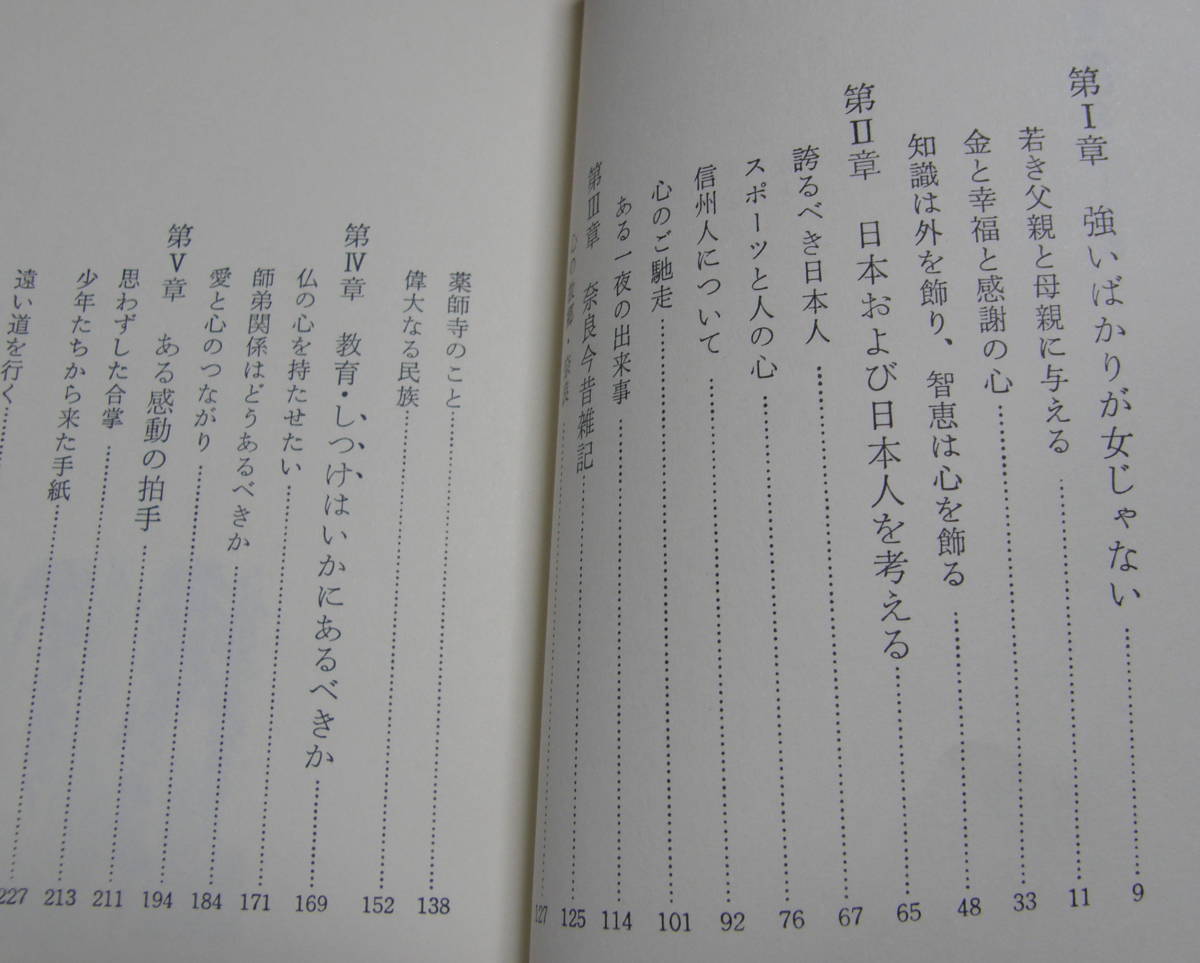 第Ⅰ章 強いばかりが女じゃない……9
若き父親と母親に与える……11
金と幸福と感謝の心……33
知識は外を飾り、智恵は心を飾る……48
第Ⅱ章 日本および日本人を考える……65
誇るべき日本人……67
スポーツと人の心……76
信州人について……92
心のご馳走……101
ある一夜の出来事……114
第Ⅲ章 奈良今昔雑記……125
心の故郷・奈良……127
薬師寺のこと……138
偉大なる民族……152
第Ⅳ章 教育・しつけはいかにあるべきか……169
仏の心を持たせたい……171
師弟関係はどうあるべきか……184
愛と心のつながり……194
第Ⅴ章 ある感動の拍手……211
思わずした合掌……213
少年たちから来た手紙……227
遠い道を行く……